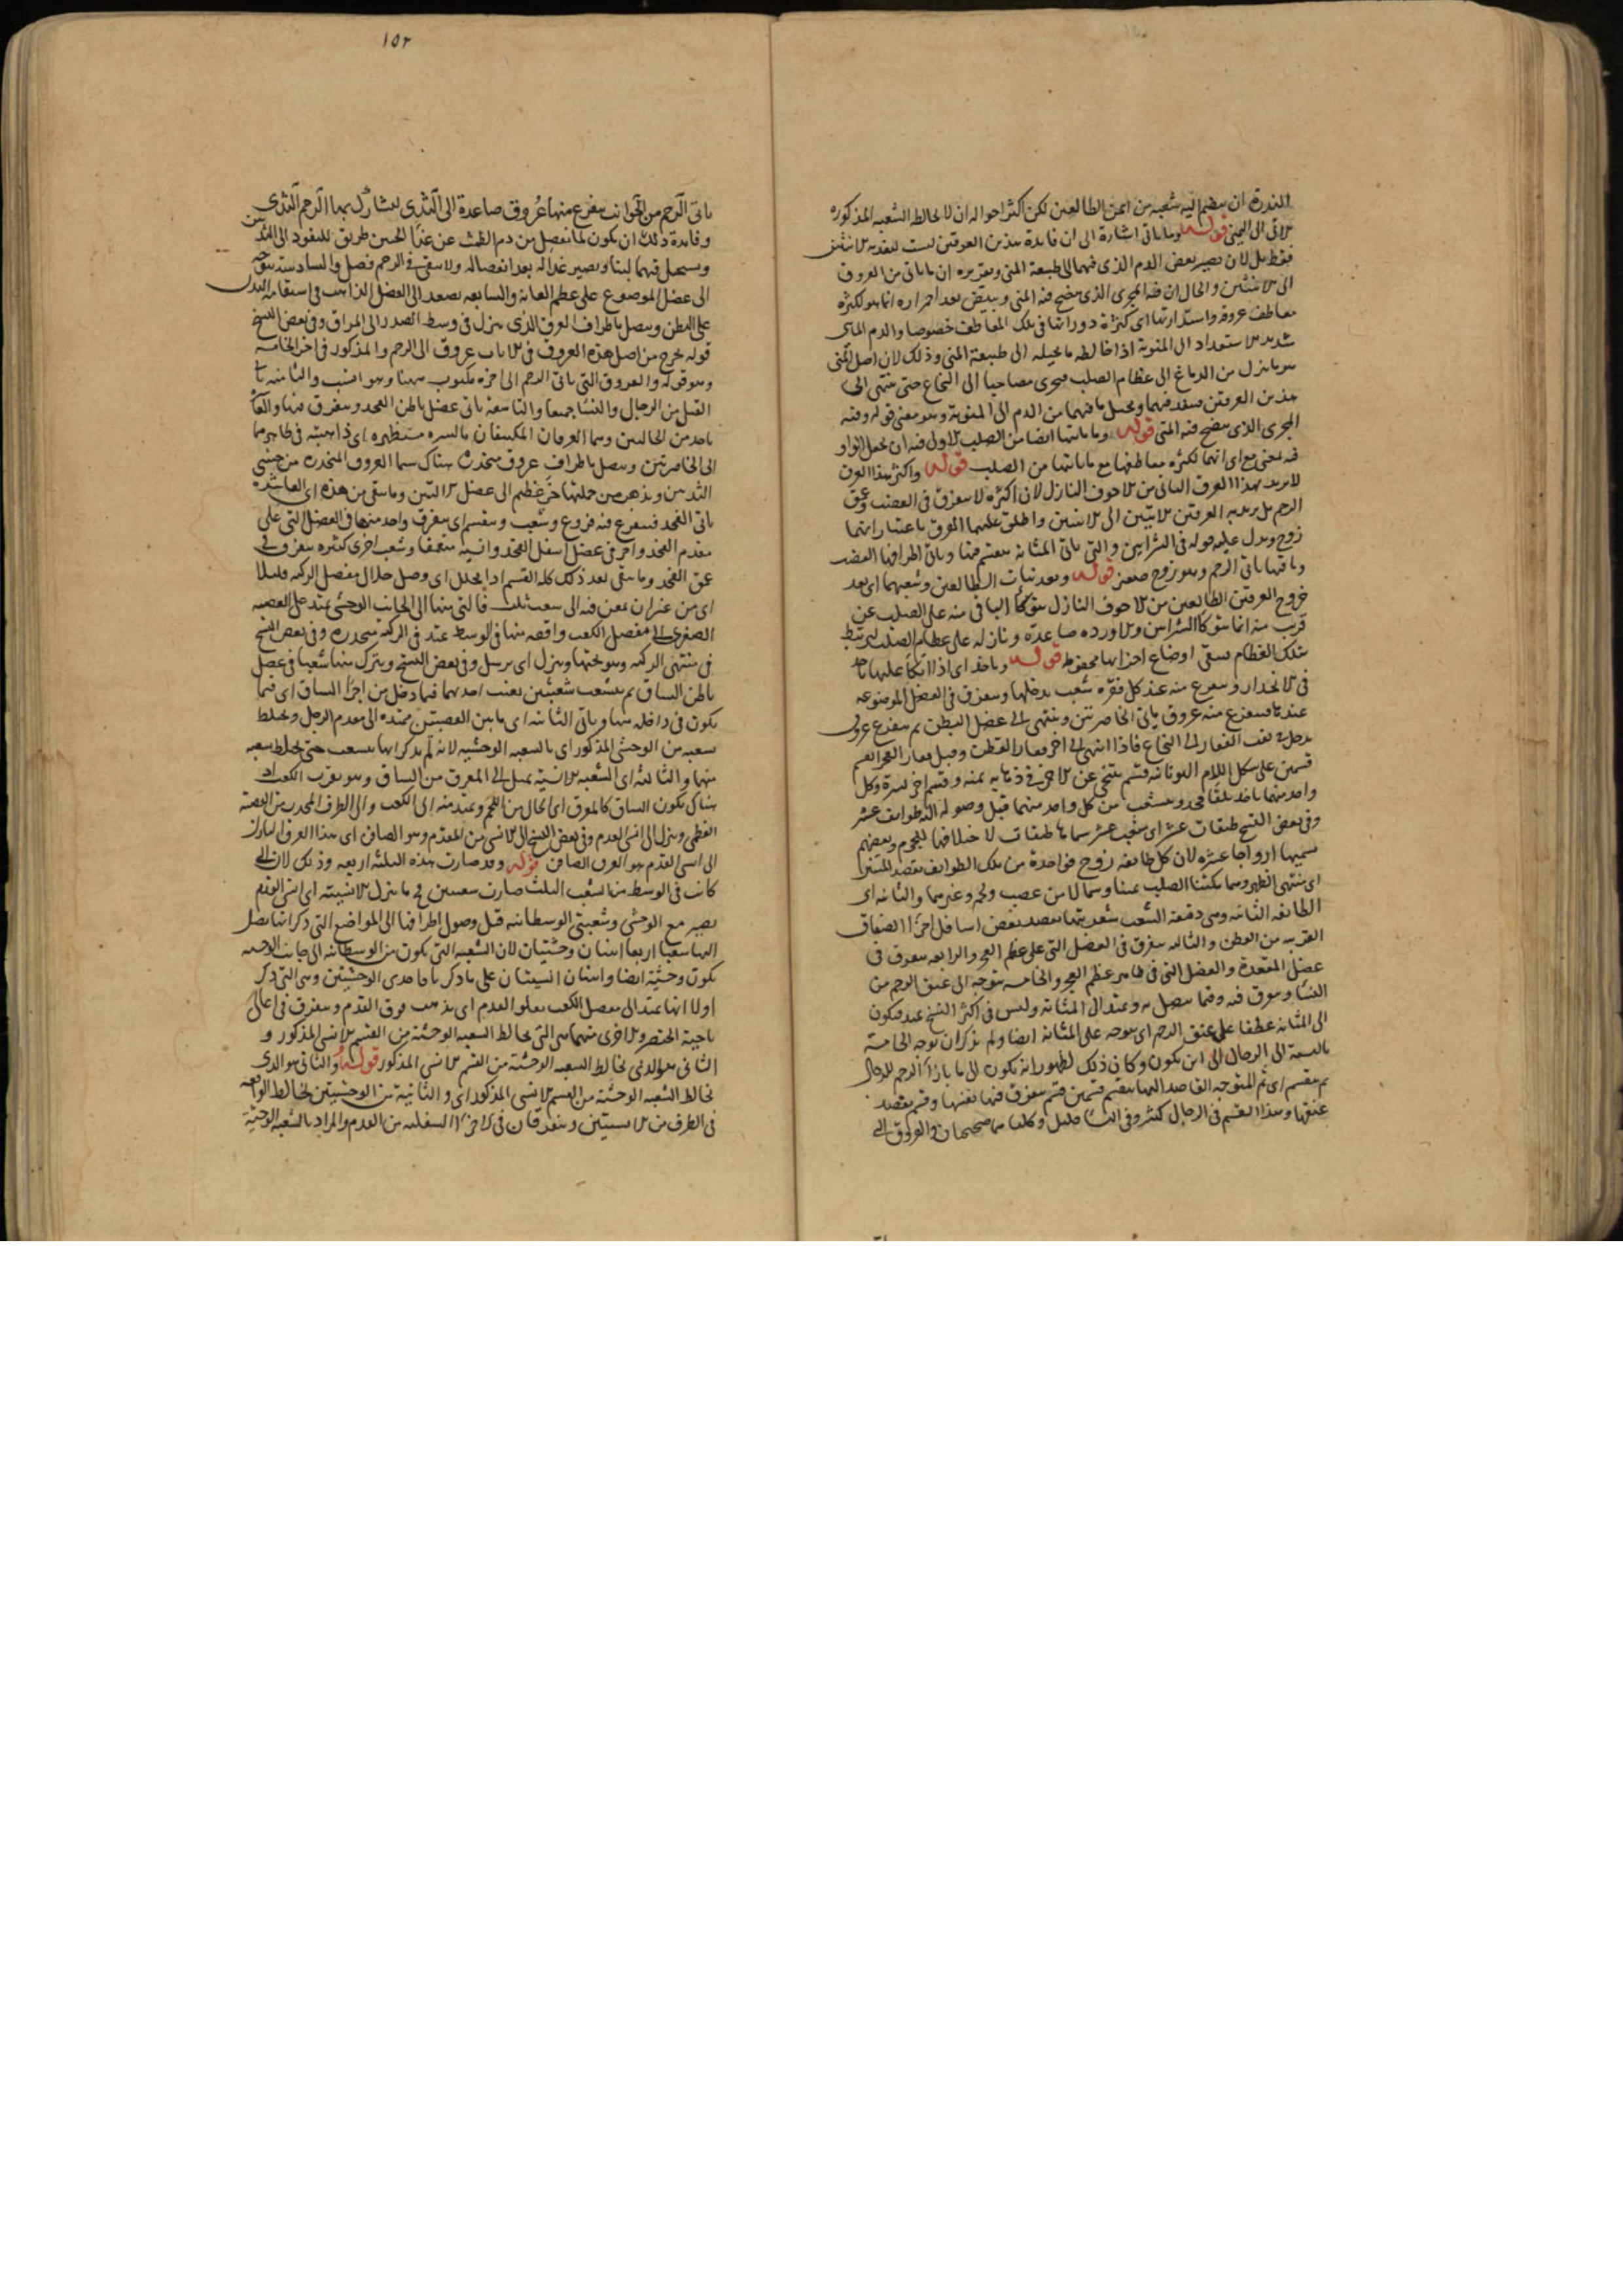 الندرة ان ينضم اليه شعبه من ايمن الطالعين لكن اكثر احواله ان لا يخالطه الشعبه المذكوره
الى اليمنى قوله وما ياتى اشارة الى ان فايدة هذين العرقين ليست لتغذيه الانثيين
فقط بل لان يصير بعض الدم الذى فيهما الى طبيعة المنى وتقريره ان ما ياتى من العروق
الى الانثيين والحال ان فيه المجرى الذى ينضج فيه المنى ويبيض بعد احمراره انما هو لكثرة
معاطف عروقه واستدارتها اى كثرة دوراتها فى تلك المعاطف خصوصا والدم الماى
شديد الاستعداد الى المنوية اذا خالطه ما يحيله الى طبيعة المنى وذلك لان اصل المنى
هو ما ينزل من الدماغ الى عظام الصلب فيجرى مصاحبا الى النخاع حتى ينتهى الى
هذين العرقين فينفد فيهما ويحيل ما فيهما من الدم الى المنوية وهو معنى قوله وفيه
المجرى الذى ينضج فيه المنى قوله وما ياتيها ايضا من الصلب الاولى فيه ان يحمل الواو
فيه بمعنى مع اى انهما لكثرة معاطفها مع ما ياتيها من الصلب قوله واكثر هذا العرق
لا يريد بهذا العرق الثانى من الاجوف النازل لان اكثره لا يتفرق فى القضيب وعنق
الرحم بل يريد به العرقين الاتيين الى الانثيين واطلق عليهما العرق باعتبار انهما
زوج ويدل عليه قوله فى الشرايين والتى ياتى المثانة ينقسم فيها وياتى اطرافها القضيب
وباقيها ياتى الرحم وهو زوج صغير قوله وبعد نبات الطالعين وشعبهما اى بعد
خروج العرقين الطالعين من الاجوف النازل يتوكأ الباقى منه على الصلب عن
قريب منه انما يتوكأ الشرايين والاورده صاعدة ونازله على عظام الصلب ليرتبط
بتلك العظام فيبقى اوضاع اجزايها محفوظة قوله وياخذ اى اذا اتكأ عليها ياخذ
فى الانحدار ويتفرع منه عند كل فقره شعب يدخلها ويتفرق فى العضل الموضوعه
عندها فيتفرع منه عروق ياتى الخاصرتين وينتهى الى عضل البطن ثم يتفرع عروق
يدخل ثقب الفقار الى النخاع فاذا انتهى الى اخر فقار القطن وقبل فقار العجز انقسم
قسمين على شكل اللام اليونانيه قسم يتنحى عن الاخر فى ذهابه يمنه وقسم اخر يسرة وكل
واحد منهما ياخذ تلقا فخد ويتشعب من كل واحد منهما قبل وصوله اليه طوايف عشر
وفى بعض النسخ طبقات عشر اى شعب عشر سماها طبقات لاختلافها للحجم وبعضهم
يسميها ازواجا عشره لان كل طايفه زوج فواحدة من تلك الطوايف يقصد المتنين
اى منتهى الظهر وهما مكتنفا الصلب يمينا وشمالا من عصب ولحم وغيرهما والثانيه اى
الطايفه الثانيه وهى دقيقة الشعب شعريتها يقصد بعض اسافل اجزا الصفاق
القريبه من القطن والثالثه يتفرق فى العضل التى على عظم العجز والرابعه يتفرق فى
عضل المقعدة والعضل التى فى ظاهر عظم العجز والخامسه يتوجه الى عنق الرحم من
النسا ويتفرق فيه وفيما يتصل به ويمتد الى المثانه وليس فى اكثر النسخ عند فيكون
الى المثانه عطفا على عنق الرحم اى يتوجه على المثانة ايضا ولم يذكر ان توجه الخامسة
بالنسبة الى الرجال الى اين يكون وكان ذلك لظهور انه يكون الى ما بازاء الرحم للرجال
ثم ينقسم اى ثم المتوجه القاصد اليها ينقسم قسمين قسم يتفرق فيها نفسها وقسم يقصد
عنقها وهذا القسم فى الرجال كثير وفى النسا قليل وكلتاهما صحيحان والعروق التى
١٥٢
ياتى الرحم من الجوانب يتفرع منها عروق صاعدة الى الثدى ليشارك بها الرحم الثدى
وفايدة ذلك ان يكون لما يفضل من دم الطمث عن غذا الجنين طريق للنفود الى الثديين
ويستحيل فيهما لبنا ويصير غذا له بعد انفصاله ولا يبقى فى الرحم فضل والسادسة يتوجه
الى عضل الموضوع على عظم العانة والسابعه يصعد الى العضل الذاهب فى استقامة البدن
على البطن ويتصل باطراف العرق الذى ينزل فى وسط الصدر الى المراق وفى بعض النسخ
قوله يخرج من اصل هذه العروق فى الاناث عروق الى الرحم والمذكور فى اخر الخامسه
وهو قوله والعروق التى ياتى الرحم الى اخره مكتوب ههنا وهو انسب والثامنه ياتى
القبل من الرجال والنسا جميعا والتاسعة ياتى عضل باطن الفخد ويتفرق فيها والعاشره
ياخد من الحالبين وهما العرقان المكتنفان بالسره مستظهره اى ذاهبة فى ظاهرهما
الى الخاصرتين ويتصل باطراف عروق منحدرة هناك سيما العروق المنحدره من جنبى
الثديين ويذهب من جملتها جزء عظيم الى عضل الانثيين وما بقى من هذه اى العاشره
ياتى الفخد فيتفرع فيه فروع وشعب وينقسم اى يتفرق واحد منها فى العضل التى على
مقدم الفخد واخر فى عضل اسفل الفخد وانسيه متعمقا وشعب اخرى كثيره يتفرق فى
عمق الفخد وما يبقى بعد ذلك كله انقسم اذا تحلل اى وصل خلال مفصل الركبه قليلا
اى من غير ان يمعن فيه الى شعب ثلث فالتى منها الى الجانب الوحشى يمتد على القصبه
الصغرى الى مفصل الكعب واقصه منها فى الوسط يمتد فى الركبة منحدره وفى بعض النسخ
فى منثنى الركبه وهو تحتها وينزل اى يرسل وفى بعض النسخ ويترك منها شعبا فى عضل
باطن الساق ثم يتشعب شعبتين يغيب احدهما فيما دخل من اجزا الساق اى فيما
يكون فى داخله منها وياتى الثانيه اى ما بين القصبتين ممتده الى مقدم الرجل ويختلط
بشعبه من الوحشى المذكور اى بالشعبه الوحشيه لانه لم يذكر انها يتشعب حتى يختلط بشعبه
منها والثالثه اى الشعبه الانسية يميل الى المعرق من الساق وهو بقرب الكعب اذ
هناك يكون الساق كالمعرق اى الخالى من اللحم ويمتد منه الى الكعب والى الطرف المحدب من القصبة
العظمى وينزل الى انسى القدم وفى بعض النسخ الى الانسى من المقدم وهو الصافن اى هذا العرق المارك
الى انسى القدم هو العرق الصافن قوله وقد صارت هذه الثلثه اربعه وذلك لان التى
كانت فى الوسط من الشعب الثلث صارت شعبتين وما ينزل الانسية اى انسى القدم
يصير مع الوحشى وشعبتى الوسطانيه قبل وصول اطرافها الى المواضع التى ذكر انها يصل
اليها شعبا اربعا اثنتان وحشيتان لان الشعبه التى يكون من الوسطانيه الى جانب الوحشيه
يكون وحشية ايضا واثنتان انسيتان على ما ذكر ياقاحدى الوحشيتين وهى التى ذكر
اولا انها يمتد الى مفصل الكعب يعلو القدم اى يذهب فوق القدم ويتفرق فى اعالى
ناحية الخنصر والاخرى منهما هى التى يخالط الشعبه الوحشية من القسم الانسى المذكور و
الثانى هو الذى يخالط الشعبه الوحشية من القسم الانسى المذكور قوله والثانى هو الذى
يخالط الشعبه الوحشية من القسم الانسى المذكور اى والثانية من الوحشيتين يخالط الواقعه
فى الطرف من الانسيتين ويتفرقان فى الاجزا السفليه من القدم والمراد بالشعبه الوحشية